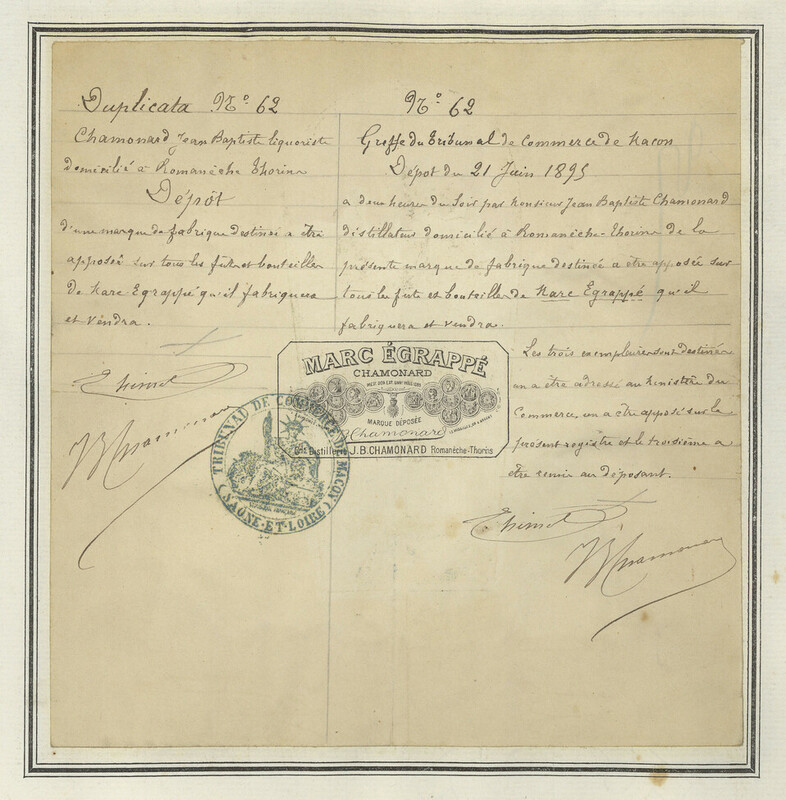 Duplicata No 62
Chamonard Jean Baptiste liquoriste
domicilié à Romanèche Thorins
Dépôt
d'une marque de fabrique destinée a être
apposée sur tous les futs et bouteilles
de Marc Egrappé qu'il fabriquera
et vendra.
Thimel
JBChamonard
No 62
Greffe du Tribunal de Commerce de Macon
Dépot du 21 Juin 1895
a deux heures du Soir par Monsieur Jean Baptiste Chamonard
distillateur domicilié à Romanèche-Thorins de la
présente marque de fabrique destinée a être apposée sur
tous les futs et bouteilles de Marc Egrappé qu'il
fabriquera et vendra.
Les trois exemplaires sont destinés
un a être adressé au Ministère du
Commerce, un a être apposé sur le
présent registre et le troisième a
être remis au déposant.
Thimel
JBChamonard
MARC ÉGRAPPÉ
CHAMONARD
MARQUE DÉPOSÉE
Chamonard
Gde Distillerie J.B.CHAMONARD Romanèche-Thorins
TRIBUNAL DE COMMERCE DE MACON
(SAONE-ET-LOIRE)